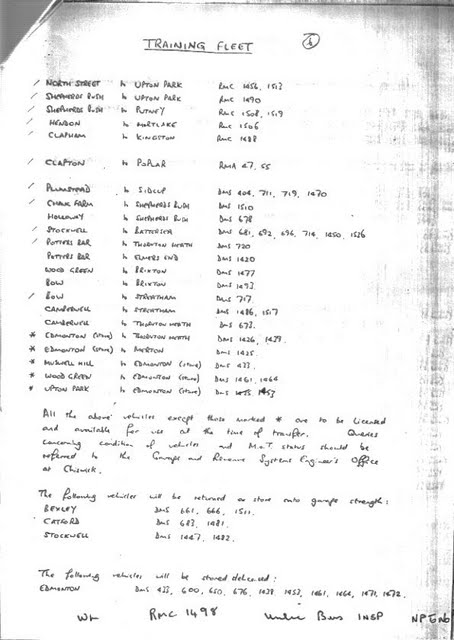 TRAINING FLEET
/ NORTH STREET to UPTON PARK RMC 1456, 1513
/ SHEPHERDS BUSH to UPTON PARK RMC 1490
/ SHEPHERDS BUSH to PUTNEY RMC 1508, 1519
/ HENDON to MORTLAKE RMC 1506
/ CLAPHAM to KINGSTON RMC 1488
/ CLAPTON to POPLAR RMA 47, 55
/ PLUMSTEAD to SIDCUP DMS 404, 711, 719, 1470
/ CHALK FARM to SHEPHERDS BUSH DMS 1510
HOLLOWAY to SHEPHERDS BUSH DMS 678
/ STOCKWELL to BATTERSEA DMS 681, 692, 696, 714, 1450, 1526
/ POTTERS BAR to THORNTON HEATH DMS 720
POTTERS BAR to ELMERS END DMS 1420
WOOD GREEN to BRIXTON DMS 1477
BOW to BRIXTON DMS 1493
/ BOW to STREATHAM DMS 717
CAMBERWELL to STREATHAM DMS 1486, 1517
CAMBERWELL to THORNTON HEATH DMS 673
* EDMONTON (store) to THORNTON HEATH DMS 1426,
* EDMONTON (store) to MERTON DMS 1425
* MUSWELL HILL to EDMONTON (store) DMS 433
* WOOD GREEN to EDMONTON (store) DMS 1461, 1464
* UPTON PARK to EDMONTON (store) DMS 1453
All the above vehicles except those marked * are to be licensed
and available for use at the time of transfer. Queries
concerning condition of vehicles and M.o.T. status should be
referred to the Garage and Revenue Systems Engineer's Office
at Chiswick.
The following vehicles will be returned or store onto garage strength:
BEXLEY DMS 661, 666, 1511
CATFORD DMS 683, 1481
STOCKWELL DMS 1447, 1482
The following vehicles will be stored delicensed:
EDMONTON DMS 433, 600, 650, 676, 1438, 1453, 1461, 1464, 1471, 1472
RMC 1498 INSP